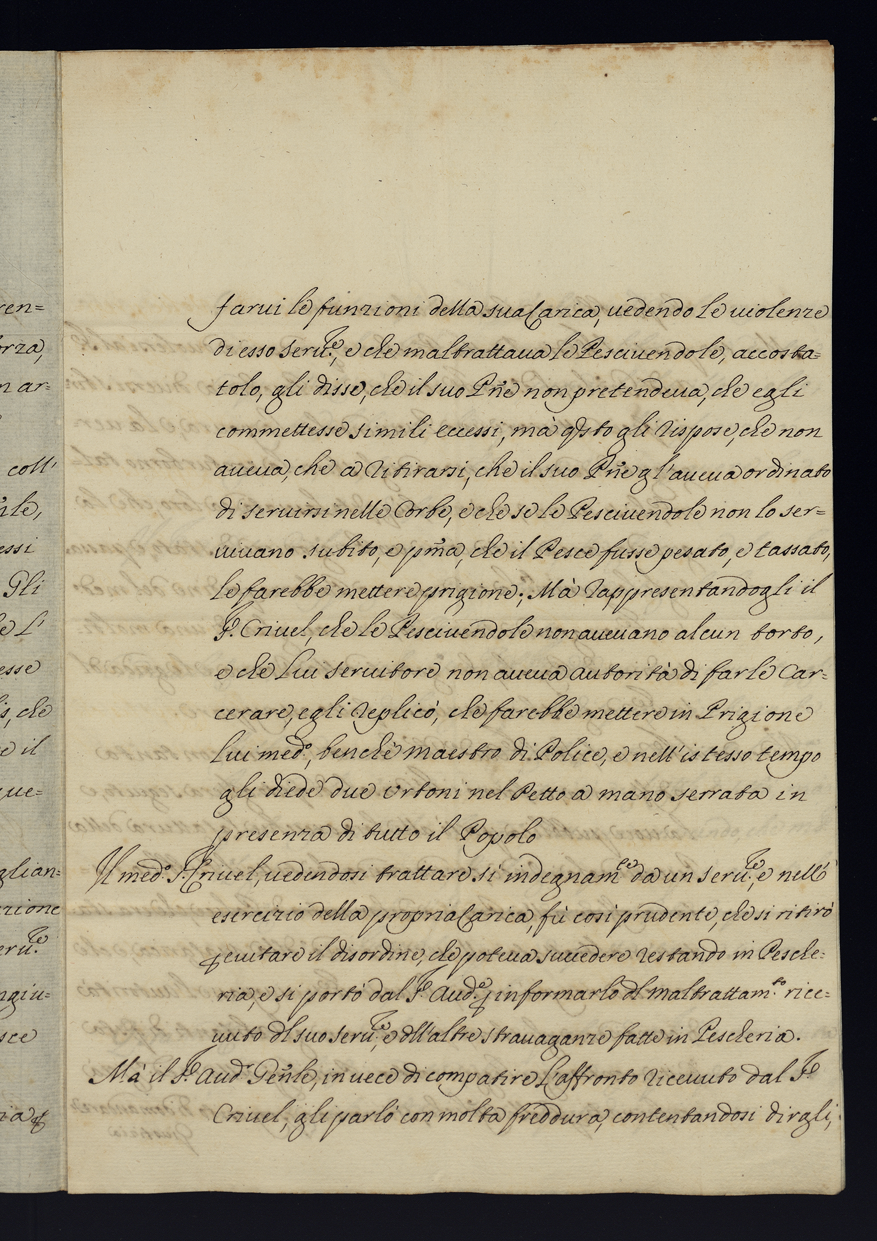 farui le funzioni della sua Carica, uedendo le uiolenze
di esso Seru.re, e che maltrattaua le Pesciuendole, accosta=
tolo, gli disse, che il suo Pñe non pretendeua, che egli
commettesse simili eccessi, mà qsto gli rispose, che non
aueua, che a ritirarsi, che il suo Pñe gl'aueua ordinato
di seruirsi nelle Corbe, e che se le Pesciuendole non lo ser=
uiuano subito, e pma, che il Pesce fusse pesato, e tassato,
le farebbe mettere prigione; Mà rappresentandogli il
S.r Criuel, che le Pesciuendole non aueuano alcun torto,
e che lui seruitore non aueua autorità di farle Car=
cerare, egli replicò, che farebbe mettere in Prigione
lui med.o, benche maestro di Police, e nell'istesso tempo
gli diede due Urtoni nel Petto a mano serrata in
presenza di tutto il Popolo
Il med.o S.r Criuel, uedendosi trattare sì indegnam.te da un seru.re, e nell'
esercizio della propria Carica, fù così prudente, che si ritirò
p euitare il disordine, che poteua succedere restando in Pesche=
ria, e si portò dal S.r Aud.re p informarlo dl maltrattam.to rice=
uuto dl suo seru.re, e dll'altre strauaganze fatte in Pescheria.
Mà il S.r Aud.r Genle, in uece di compatire l'affronto riceuuto dal S.r
Criuel, gli parlò con molta freddura, contentandosi dirgli,
ren=
orza,
n ar=
coll'
nle,
essi
Gli
e L'
esse
che
e il
que=
glian=
zione
eru.re
ngiu=
sce